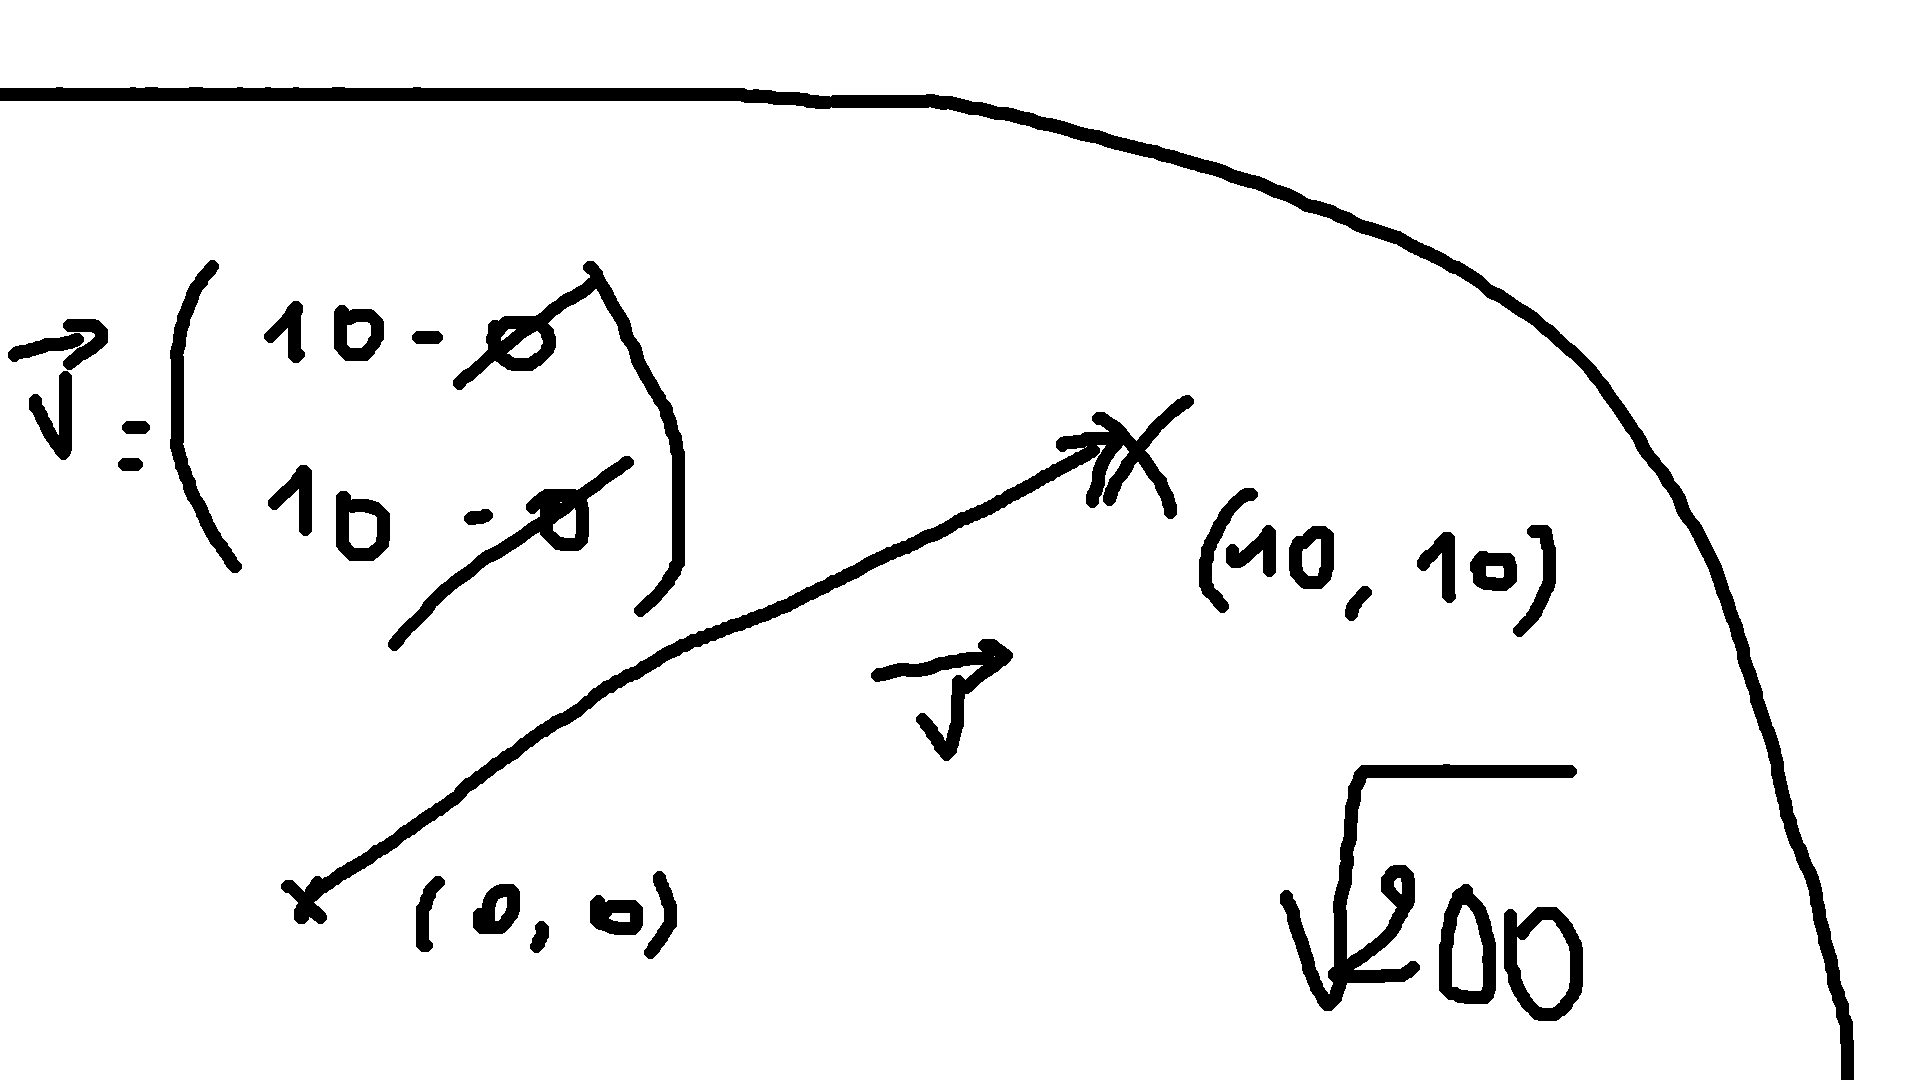 v⃗ = ( 10 - 0
10 - 0 )
(10, 10)
v⃗
(0, 0)
√200